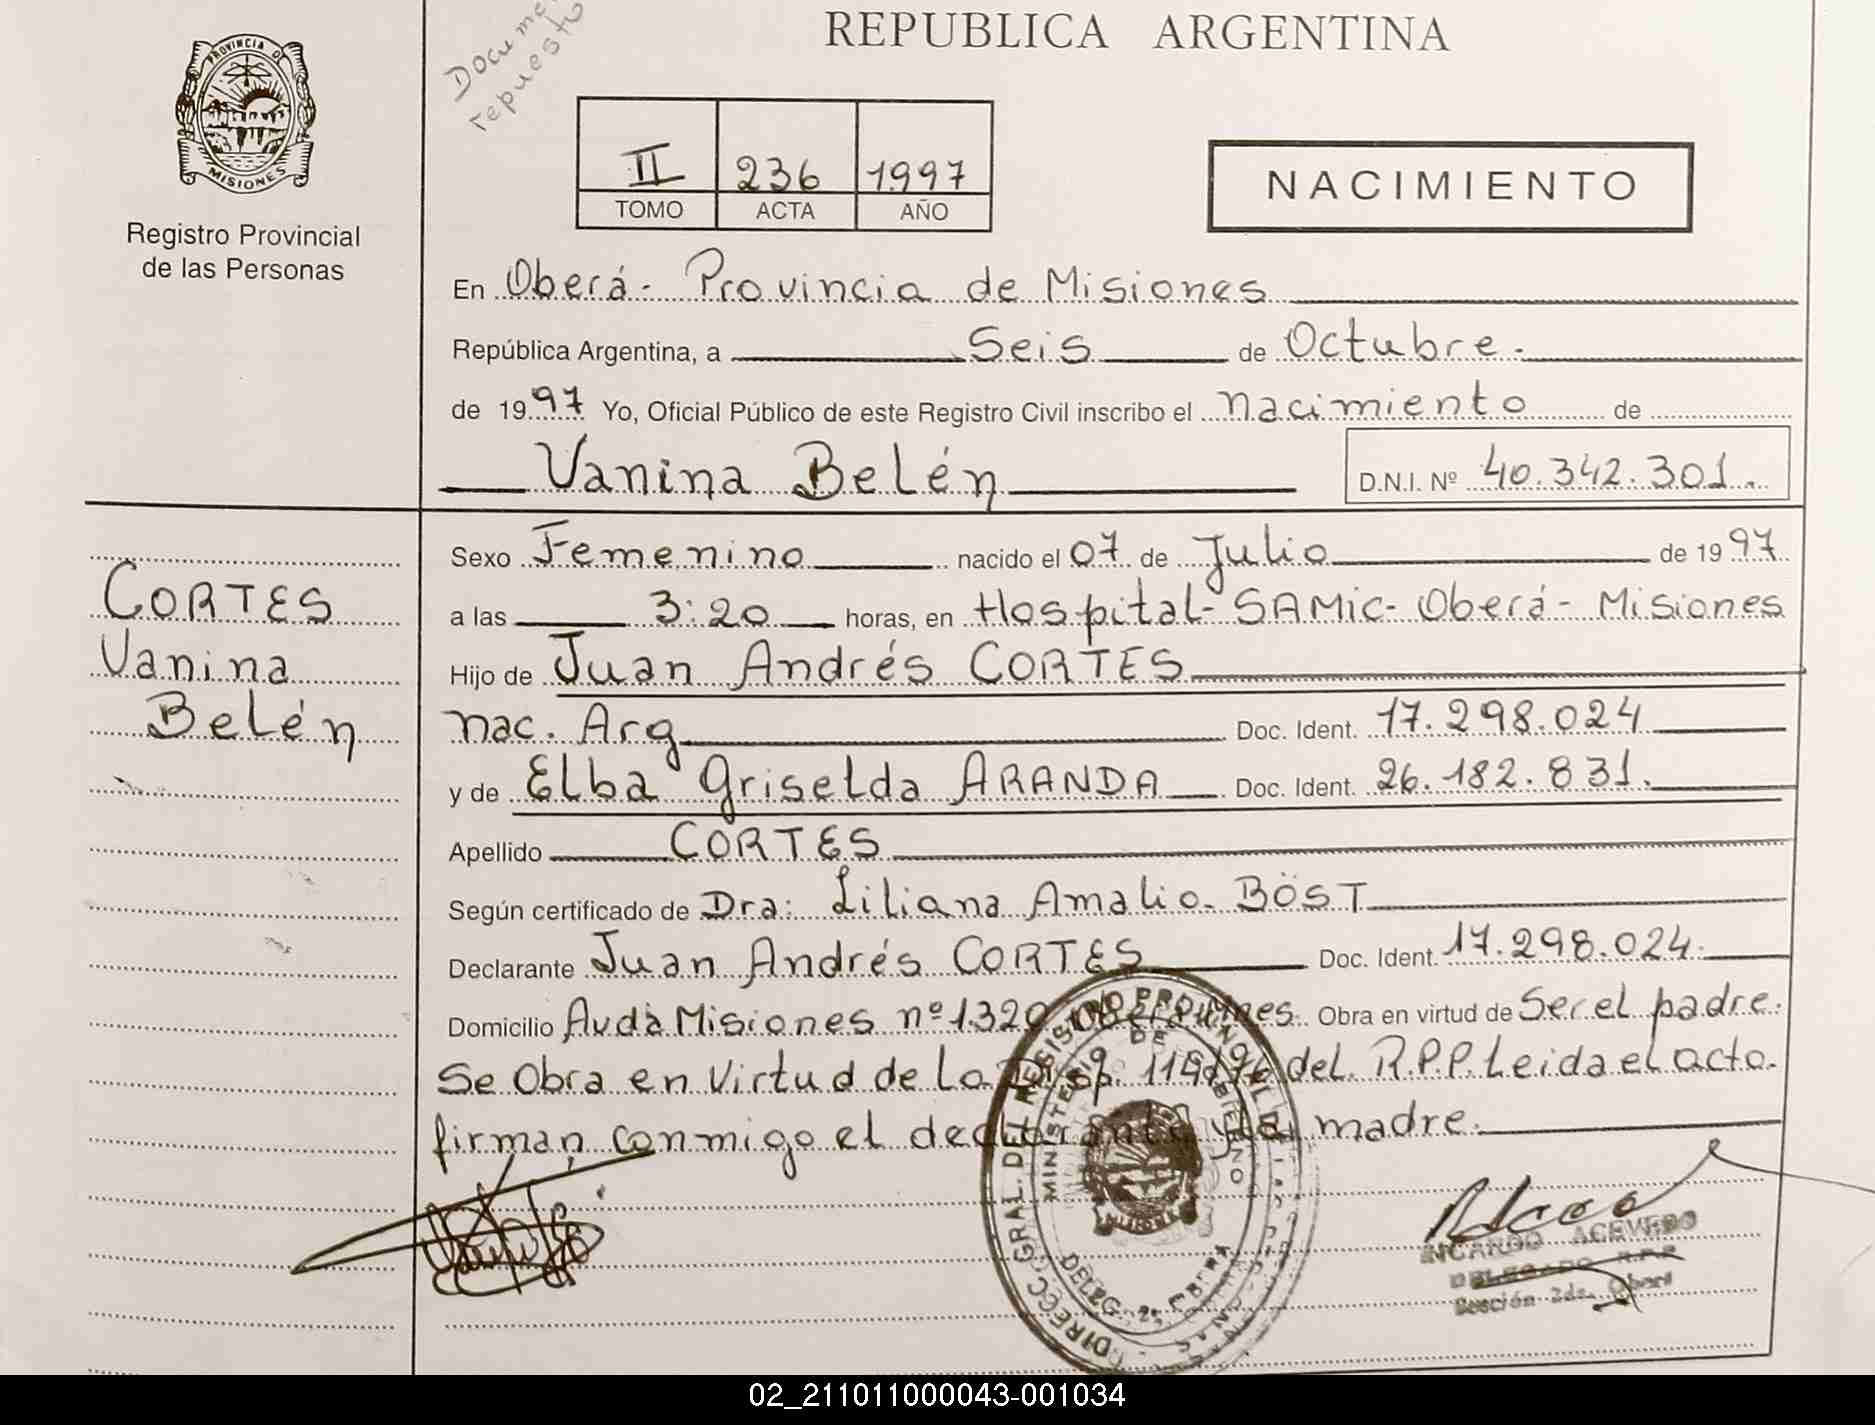 Documento
repuesto
REPUBLICA ARGENTINA
PROVINCIA DE
MISIONES
Registro Provincial
de las Personas
II 236 1997
TOMO ACTA AÑO
NACIMIENTO
En Oberá - Provincia de Misiones
República Argentina, a Seis de Octubre.
de 1997 Yo, Oficial Público de este Registro Civil inscribo el nacimiento de
Vanina Belén D.N.I. Nº 40.342.301..
CORTES
Vanina
Belén
Sexo Femenino nacido el 07 de Julio de 1997
a las 3:20 horas, en Hospital- SAMic- Oberá- Misiones
Hijo de Juan Andrés CORTES
nac. Arg Doc. Ident. 17.298.024
y de Elba Griselda ARANDA Doc. Ident. 26.182.831.
Apellido CORTES
Según certificado de Dra: Liliana Amalio. BÖST
Declarante Juan Andrés CORTES Doc. Ident. 17.298.024.
Domicilio Avda Misiones nº 1.320 Obera Obra en virtud de Ser el padre.
Se Obra en Virtud de La Disp. del R.P.P. Leida el acto.
firman conmigo el declarante y la madre.
DIRECC. GRAL. DEL REGISTRO PROVINCIAL
MINISTERIO DE GOBIERNO
MISIONES
DELEG. 2º OBERA
RICARDO ACEVEDO
DELEGADO R.P.P.
Sección 2da. Oberá
02_211011000043-001034